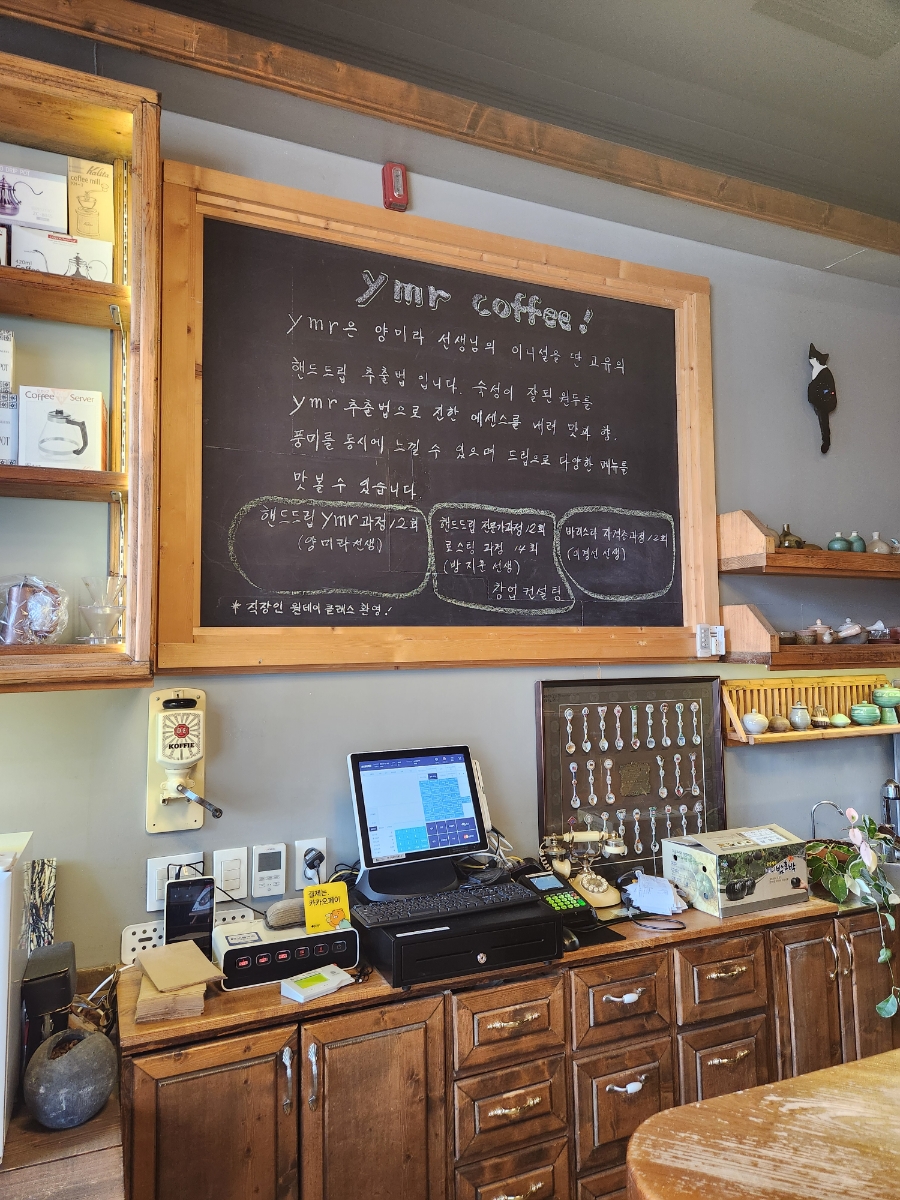 ymr coffee!
ymr은 양미라 선생님의 이니셜을 딴 고유의
핸드드립 추출법 입니다. 숙성이 잘된 원두를
ymr 추출법으로 진한 에센스를 내려 맛과 향.
풍미를 동시에 느낄 수 있으며 드립으로 다양한 메뉴를
맛 볼 수 있습니다.
핸드드립 ymr과정 12회
(양미라선생)
핸드드립 전문가과정 12회
로스팅 과정 14회
(방지훈 선생)
창업 컨설팅
바리스타 자격증과정 12회
(이경선 선생)
* 직장인 원데이 클래스 환영!
Kalita
coffee mill
Coffee Server
KOFFIE
결제는
카카오페이